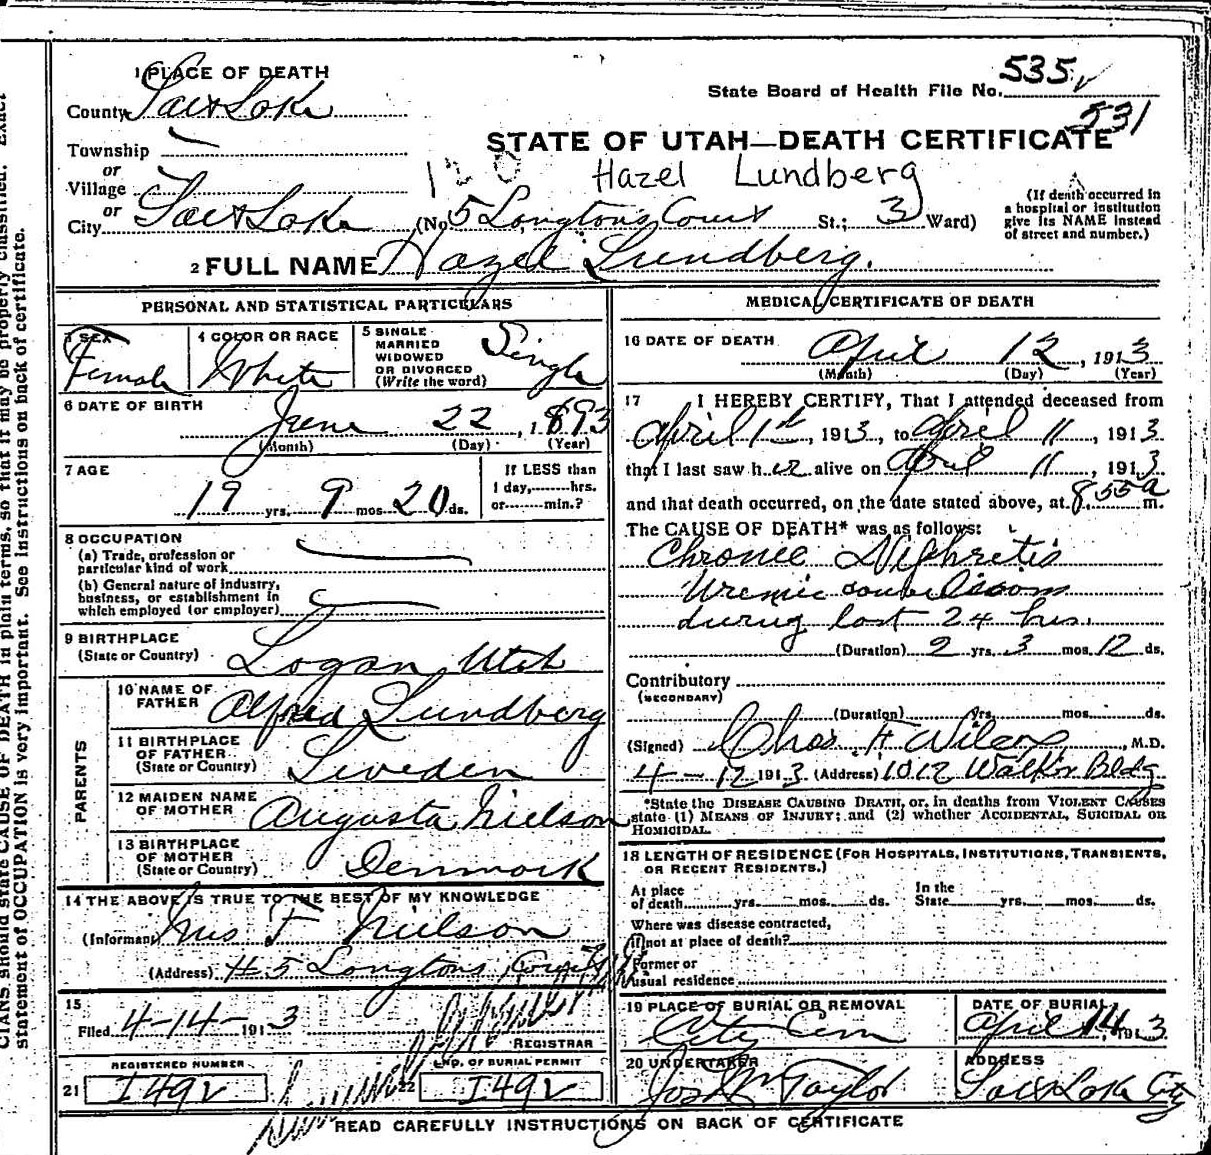 1 PLACE OF DEATH
County Salt Lake
Township
or
Village
or
City Salt Lake (No. 5 Longtons Court St.; 3 Ward)
State Board of Health File No. 535
531
STATE OF UTAH—DEATH CERTIFICATE
120
Hazel Lundberg
(If death occurred in
a hospital or institution
give its NAME instead
of street and number.)
2 FULL NAME Hazel Lundberg.
PERSONAL AND STATISTICAL PARTICULARS
3 SEX
Female
4 COLOR OR RACE
White
5 SINGLE
MARRIED
WIDOWED
OR DIVORCED
(Write the word)
Single
6 DATE OF BIRTH
June 22, 1893
(Month) (Day) (Year)
7 AGE
19 yrs. 9 mos. 20 ds.
If LESS than
1 day, hrs.
or min.?
8 OCCUPATION
(a) Trade, profession or
particular kind of work
(b) General nature of industry,
business, or establishment in
which employed (or employer)
9 BIRTHPLACE
(State or Country)
Logan Utah
PARENTS
10 NAME OF
FATHER
Alfred Lundberg
11 BIRTHPLACE
OF FATHER
(State or Country)
Sweden
12 MAIDEN NAME
OF MOTHER
Augusta Nielson
13 BIRTHPLACE
OF MOTHER
(State or Country)
Denmark
14 THE ABOVE IS TRUE TO THE BEST OF MY KNOWLEDGE
(Informant) Mrs F Nielson
(Address) #5 Longtons Court
15
Filed 4-14- 1913
REGISTRAR
REGISTERED NUMBER
21 I492
NO. OF BURIAL PERMIT
22 I492
MEDICAL CERTIFICATE OF DEATH
16 DATE OF DEATH
April 12, 1913
(Month) (Day) (Year)
17 I HEREBY CERTIFY, That I attended deceased from
April 1st, 1913, to April 11, 1913
that I last saw her alive on April 11, 1913
and that death occurred, on the date stated above, at 8.55 a m.
The CAUSE OF DEATH* was as follows:
Chronic Nephritis
Uremic convulsions
during last 24 hrs.
(Duration) 2 yrs. 3 mos. 12 ds.
Contributory
(SECONDARY)
(Duration) yrs. mos. ds.
(Signed) Chas. F. Wilcox, M.D.
4-12 1913 (Address) 1012 Walker Bldg
*State the DISEASE CAUSING DEATH, or, in deaths from VIOLENT CAUSES
state (1) MEANS OF INJURY; and (2) whether ACCIDENTAL, SUICIDAL OR
HOMICIDAL.
18 LENGTH OF RESIDENCE (FOR HOSPITALS, INSTITUTIONS, TRANSIENTS,
OR RECENT RESIDENTS.)
At place
of death yrs. mos. ds.
In the
State yrs. mos. ds.
Where was disease contracted,
if not at place of death?
Former or
usual residence
19 PLACE OF BURIAL OR REMOVAL
City Cem
DATE OF BURIAL
April 14, 1913
20 UNDERTAKER
Jos Wm Taylor
ADDRESS
Salt Lake City
READ CAREFULLY INSTRUCTIONS ON BACK OF CERTIFICATE
CIANS should state CAUSE OF DEATH in plain terms, so that it may be properly classified. Exact
statement of OCCUPATION is very important. See instructions on back of certificate.